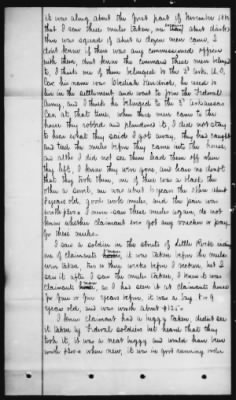 it was along about the first part of November 1863
that I saw these mules taken, one about dark,
this was squads of about a dozen men came, I
don't know if there was any commissioned officers
with them, dont know the command these men belonged
to, I think one of them belonged to the 3rd Ark.
Cav, his name was Hardwick, he used to
live in the settlement and went to join the Federal
Army, and I think he belonged to the 3rd Arkansas
Cav at that time, when these men came to the
house they robbed and plundered it, I did not stay
to hear what they said I got away, they had caught
and tied the mules before they came into the house,
and altho I did not see them lead them off when
they left, I know they were gone, and have no doubt
that they took them, one of them was a black the
other a sorrel, one was about 6 years the other about
8 years old, good work mules, and the pair was
worth I never saw these mules again, do not
know whether claimant ever got any voucher or pay
for these mules.
I saw a soldier in the streets of Little Rock riding
one of claimants it was taken before the mules
were taken, two or three weeks before I reckon, but I
saw it after I saw the mules taken, I knew it was
claimants as I has seen it at claimants house
for four or five years before, it was a bay, 8 or 9
years old, and was worth about $125.
I knew claimant had a buggy taken, didnt see
it taken by Federal soldiers but heard that they
took it, it was a neat buggy and would have been
worth when new, it was in good running order